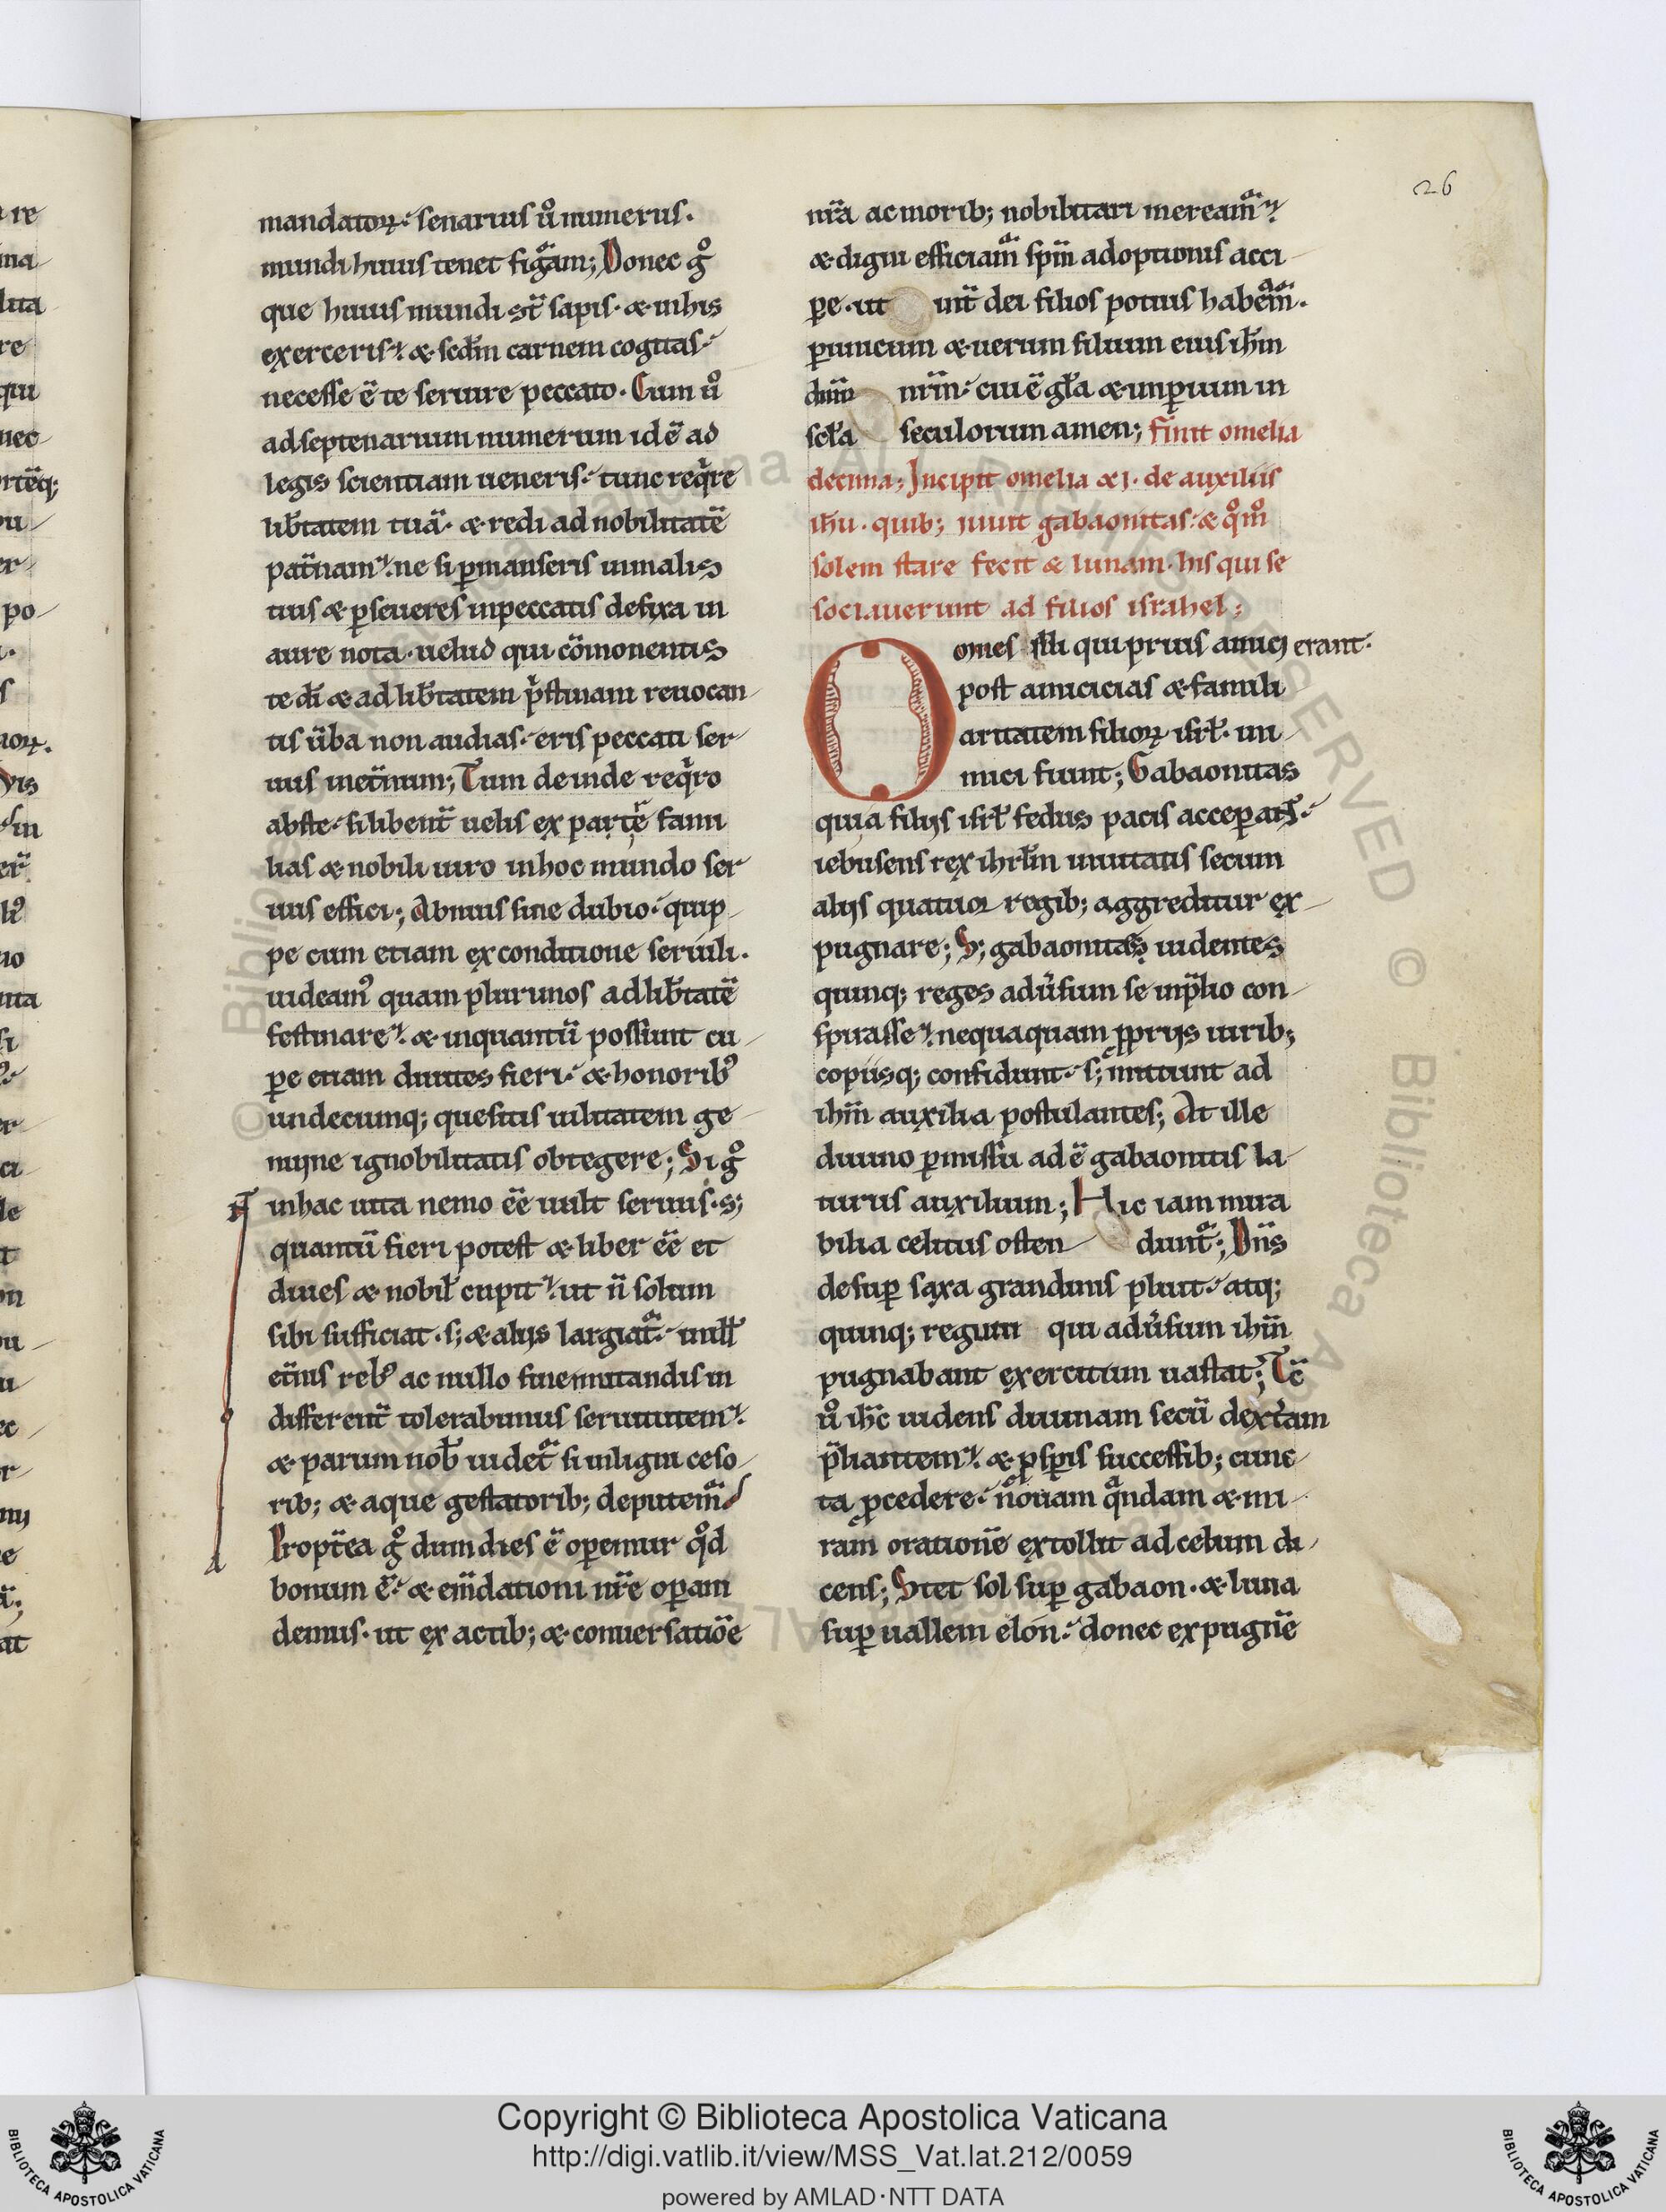 26
mandatoꝝ. senarius u̾o numerus.
mundi huius tenet figᷓam; Donec gͦ
que huius mundi st̄ sapis. & in his
exerceris. & scd̄m carnem cogitas.
necesse ē te seruire peccato. Cum uͦ
ad septenarium numerum id ē ad
legis scientiam ueneris. tunc reqͥre
lib̄tatem tuā. & redi ad nobilitatē
pat̄nam. ne si ꝑmanseris uernalis
tuis & ꝑseueres in peccatis defixa in
aure nota. uelud qui cōmonentis
te dī & ad lib̄tatem pͥstinam reuocan
tis ūba non audias. eris peccati ser
uus inet̄num; Tum deinde reqͥro
abste. si liben̄t uelis ex parte fami
lias & nobili uiro in hoc mundo ser
uus effici; Abnuis sine dubio. quip
pe cum etiam ex conditione seruili.
uideamꝰ quam plurimos ad lib̄tatē
festinare. & inquantū possunt cu
pe etiam diuites fieri. & honoribꝰ
undecumq; quesitis uilitatem ge
nuine ignobilitatis obtegere; Si gͦ
in hac uita nemo eē uult seruus. s;
quantū fieri potest & liber eē et
diues & nobil̄ cupit. ut n̄ solum
sibi sufficiat. s; & aliis largiat᷒. null̄
et̄nis rebꝰ ac nullo fine mutandis in
differen̄t tolerabimus seruitutem.
& parum nob̄ uidet᷒ si in ligni ceso
rib; & aque gestatorib; deputem᷒
Propt̄ea gͦ dum dies ē operemur qͦd
bonum ē. & em̄dationi nr̄e operam
demus. ut ex actib; & conuersatiōe
nr̄a ac morib; nobilitari meream᷒
& digni efficiam᷒ sp̄m adoptionis acci
pe. ut int̄ dei filios potius habem᷒.
ꝑ unicum & uerum filium eius ih̄m
dn̄m nr̄m. cui ē gl̄a & imperium in
scl̄a seculorum amen; finit omelia
decima; Incipit omelia xi. de auxiliis
ih̄u. quib; iuuit gabaonitas. & qͦmͦ
solem stare fecit & lunam. his qui se
sociauerunt ad filios israhel;
Omnes illi qui prius amici erant.
post amicicias & famili
aritatem filioꝝ isrl̄. ini
mici fiunt; Gabaonitas
quia filiis isrl̄ fedus pacis acceperant.
iebuseus rex ihrl̄m inuitatis secum
aliis quatuor regib; aggreditur ex
pugnare; S; gabaonitas uidentes
quinq; reges adūsum se in p̄lio con
spirasse. nequaquam ꝓpriis uirib;
copiisq; confidunt. s; mittunt ad
ih̄m auxilia postulantes; At ille
diuino ꝑmissu ad ē gabaonitis la
turus auxilium; Hic iam mira
bilia celitus osten dunt᷒; Dn̄s
desup saxa grandinis pluit. atq;
quinq; regum qui adūsum ih̄m
pugnabant exercitum uastat; Tc̄
uͦ ih̄c uidens diuinam secū dextam
p̄liantem. & ꝓspis successib; cunc
ta ꝓcedere. nouam qͣndam & mi
ram orationē extollit ad celum di
cens; Stet sol sup gabaon. & luna
sup uallem elón. donec expugnē
Copyright © Biblioteca Apostolica Vaticana
http://digi.vatlib.it/view/MSS_Vat.lat.212/0059
powered by AMLAD·NTT DATA
BIBLIOTECA APOSTOLICA VATICANA
BIBLIOTECA APOSTOLICA VATICANA